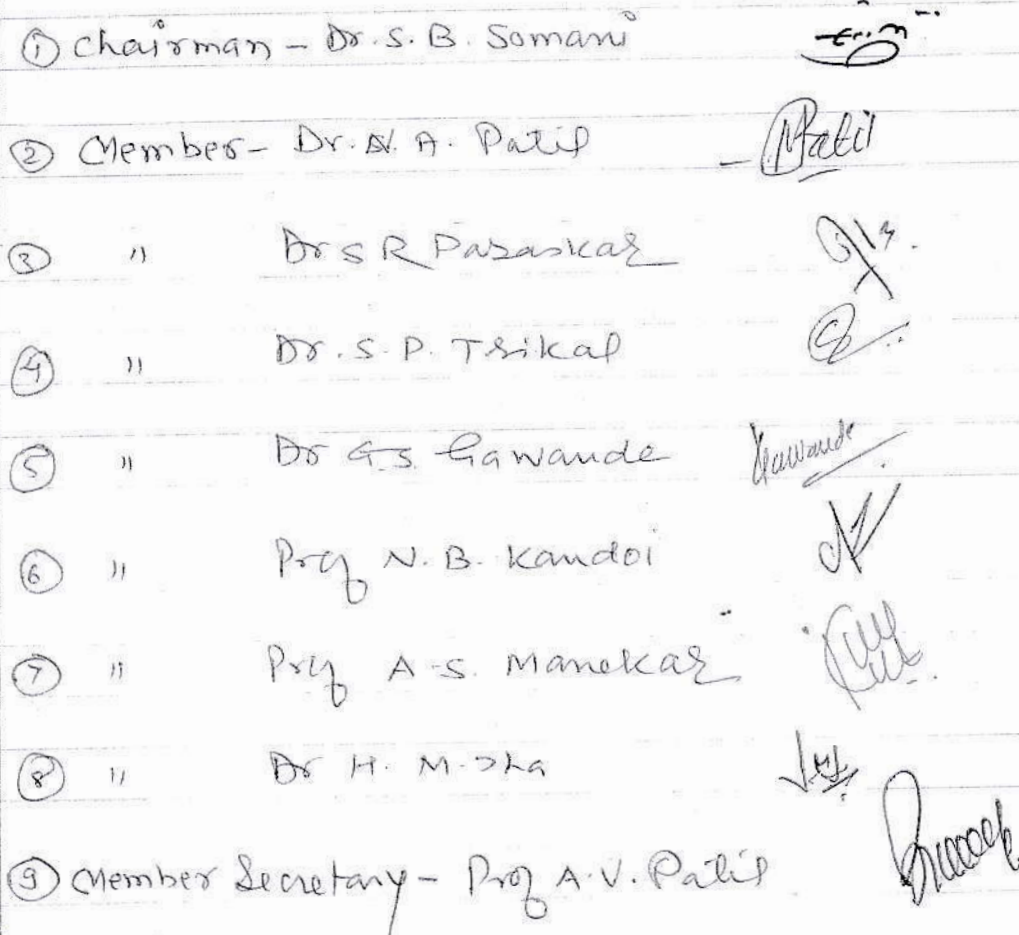 ① Chairman - Dr. S. B. Somani
② Member - Dr. N. A. Patil - Patil
③ " Dr S R Paraskar
④ " Dr. S. P. Trikal
⑤ " Dr G.S. Gawande Gawande
⑥ " Prof N. B. Kandoi
⑦ " Prof A.S. Manekar
⑧ " Dr H. M. Jha
⑨ Member Secretary - Prof A.V. Patil